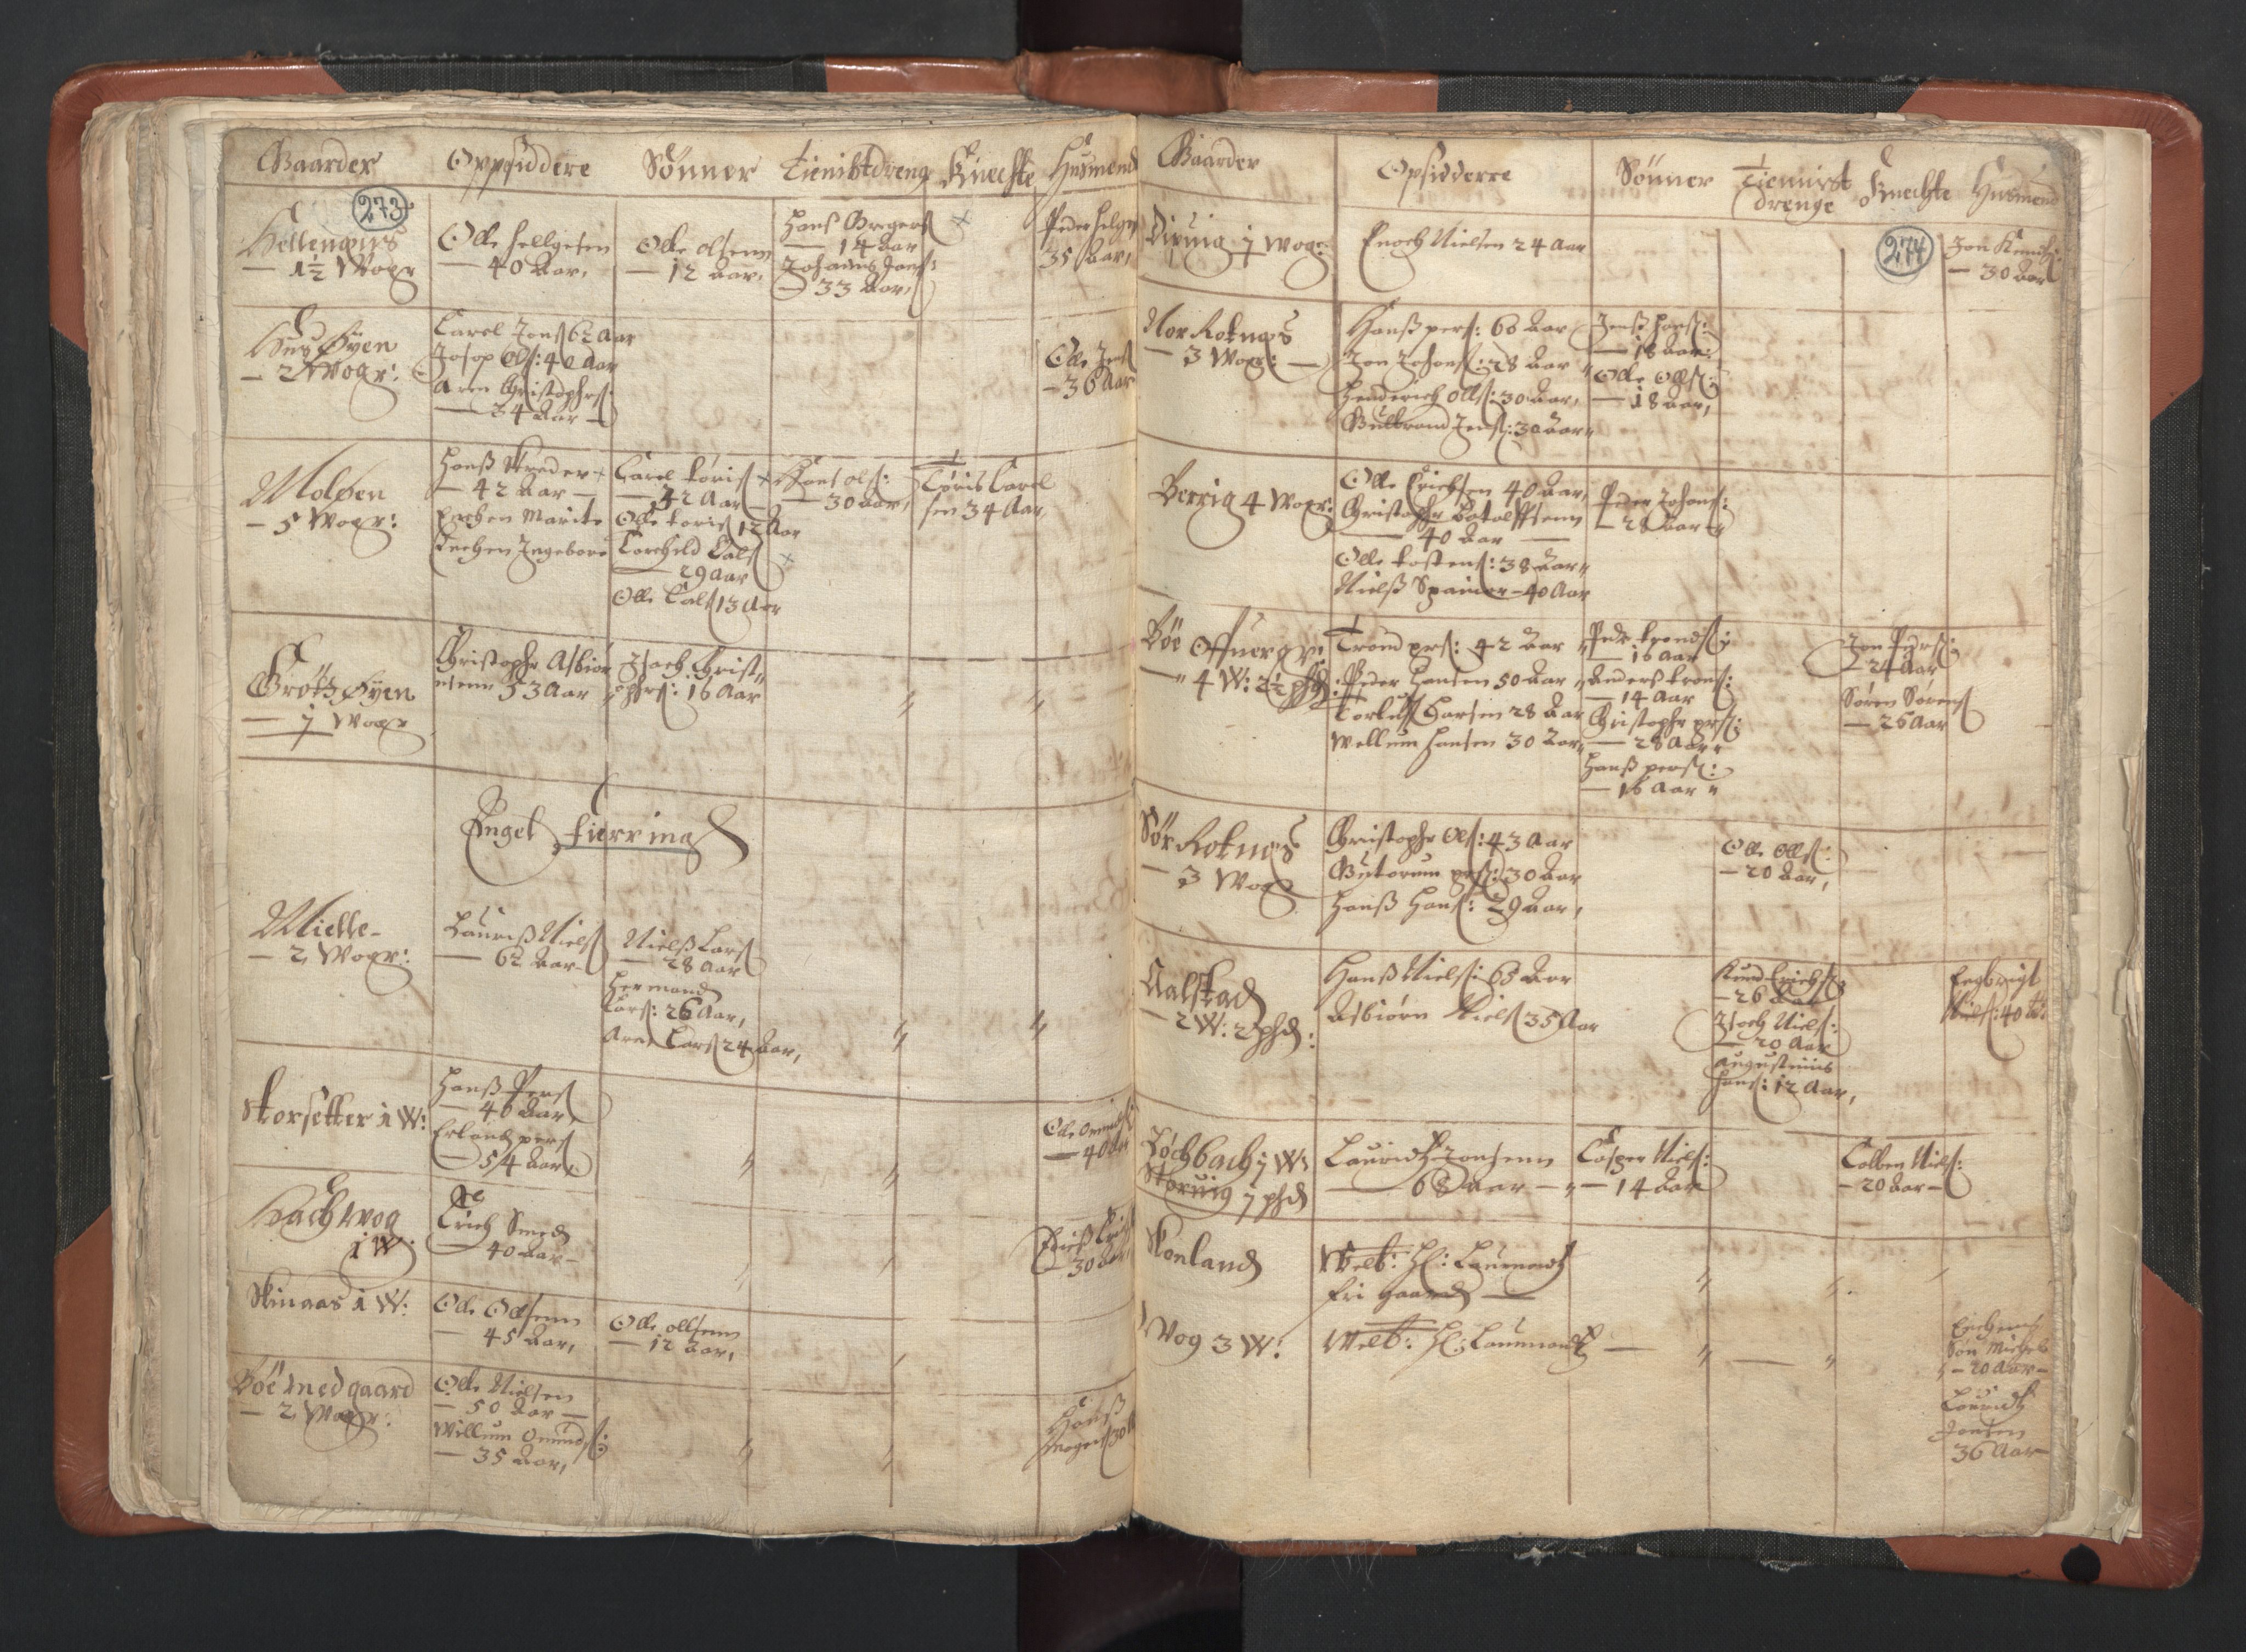 Gaarder Oppsiddere Sønner Tienistdreng Knechte Husmend
273
Hellenæss
— 1½ Wogr
Olle Hellgesen
— 40 Aar,
Olle Olsenn
— 12 Aar,
Hans Gregers
— 14 Aar
Johannis Jons:
— 33 Aar,
Peder Helges
35 Aar,
Hus Øyen
— 2 Wogr:
Carel Jons 62 Aar
Josop Ols: 40 Aar
Aren Christophers:
— 34 Aar —
Olle Jens
— 36 Aar
Moløen
— 5 Wogr:
Hanss Skreder
— 42 Aar —
Enchen Marite
Enchen Ingebore
Carel Toris
— 32 Aar
Olle Toris 12 Aar
Torchild Cals
— 29 Aar
Olle Cals 13 Aar
Hans Ols:
— 30 Aar,
Toris Carel
sen 34 Aar,
Grøtz Øyen
— 1 Wogr
Christopher Asbiør
nsenn 53 Aar
Isach Christ"
ophrs: 16 Aar
Engel fierring
Mielle-
— 2 Wogr:
Lauriss Niels
— 62 Aar
Nielss Lars
— 28 Aar
Hermand
Lars: 26 Aar,
Aren Lars 24 Aar,
Storsetter 1 W:
Hanss Pers
— 46 Aar
Erland pers
— 54 Aar
Olle
— 40 Aar
Hachwog
1 W.
Erich Smed
— 40 Aar —
30 Aar
Skinaas 1 W:
Olle Olsenn
— 45 Aar,
Olle ollsenn
— 12 Aar,
Böe Medgaard
— 2 Wogr:
Olle Nielsen
— 50 Aar —
Willum Omunds:
— 35 Aar,
Hanss
Mogens 30 A
Gaarder Opsidderre Sønner Tiennist
drenge Knechte Husmend
274
Diping 1 Wogr:
Enoch Nielsen 24 Aar
Jon
— 30 Aar
Nor Rotnæs
— 3 Wogr: —
Hanss pers: 60 Aar
Jon Johans: 28 Aar
Henderich Olls: 30 Aar,
Gulbrand Jens: 30 Aar
Jenss Hans:
— 18 Aar:
Olle Olls:
— 18 Aar,
Berrig 4 Wogr:
Olle Erichsen 40 Aar,
Christopher Botolffsenn
— 40 Aar —
Olle Tostens: 38 Aar
Nielss Spanier — 40 Aar
Peder Johans:
— 28 Aar
Böe Offuergr:
— 4 W: 2½ phd:
Trond prs: 42 Aar
Peder Hansen 50 Aar
Torlufs Larsen 28 Aar
Wellum Hansen 30 Aar
Pedr Tronds:
— 16 Aar
Anders Trons:
— 14 Aar
Christophr prs:
— 28 Aar
Hanss pers:
— 16 Aar
Jon Peders:
— 24 Aar
Søren Sørens
— 26 Aar
Sør Rotnæs
— 3 Wog
Christophr Ols: 43 Aar
Gutorum prs: 30 Aar
Hanss Hans: 29 Aar,
Olle Olls:
— 20 Aar,
Aalstad
— 2 W: 2 phd:
Hanss Niels: 65 Aar
Asbiørn Niels 35 Aar
Knud Erichs
— 26 Aar
Isach Niels:
— 20 Aar
Augustinus
Hans: 12 Aar,
Engbrigt
Niels: 40 A:
Böchbach 1 W:
Storuig 1 phd
Lauridtz Jonsenn
— 68 Aar —
Casper Niels:
— 14 Aar
Colben Niels:
— 20 Aar —
Skonland
Welb: Hl: Laumandtz
fri gaard —
Wog 3 W:
Welb: Hl: Laumandtz —
Søn Michel
— 20 Aar —
Lauridtz
Jonsen
36 Aar